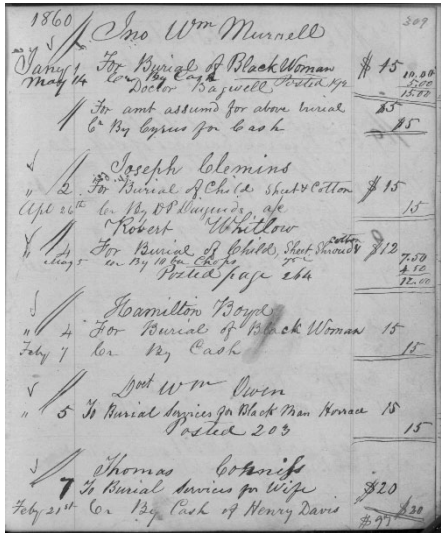 1860 309
Jno Wm Murrell
Jany 1 For Burial of Black Woman $15
May 14 Cr By Cash 10.00
Doctor Bagwell Posted 5.00
15.00
1 For amt assumd for above burial $5
Cr By Cyrus for Cash $5
Joseph Clemins
" 2 For Burial of Child Sheet & Cotton $15
Apl 26th Cr By DP Duiguids a/c 15
Robert Whitlow
" 4 For Burial of Child, Sheet Shroud & cotton $12
Cr By 10 bu Chops 7.50
4.50
Posted page 264 12.00
Hamilton Boyd
" 4 For Burial of Black Woman 15
Feby 7 Cr By Cash 15
Doct Wm Owen
" 5 To Burial Services for Black Man Horrace 15
Posted 203 15
Thomas Corniss
7 To Burial Services for Wife $20
Feby 21st Cr By Cash of Henry Davis $20
$97